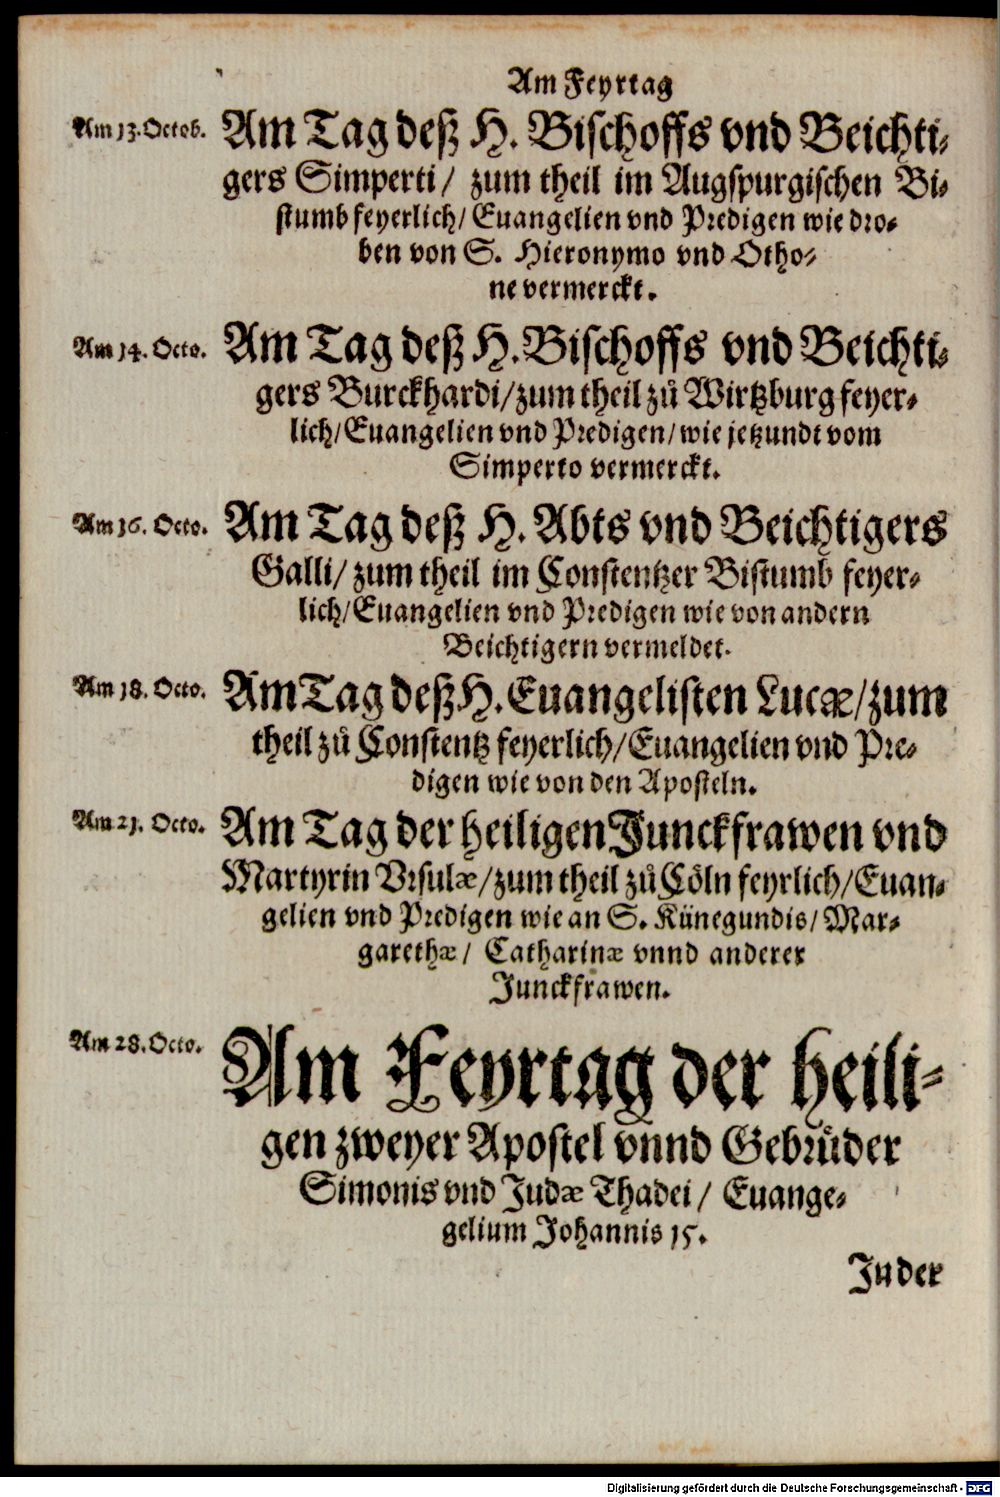 Am Feyrtag
Am 13. Octob. Am Tag deß H. Bischoffs vnd Beichti-
gers Simperti/ zum theil im Augspurgischen Bi-
stumb feyerlich/ Euangelien vnd Predigen wie dro-
ben von S. Hieronymo vnd Otho-
ne vermerckt.
Am 14. Octo. Am Tag deß H. Bischoffs vnd Beichti-
gers Burckhardi/ zum theil zů Wirtzburg feyer-
lich/ Euangelien vnd Predigen/ wie jetzundt vom
Simperto vermerckt.
Am 16. Octo. Am Tag deß H. Abts vnd Beichtigers
Galli/ zum theil im Constentzer Bistumb feyer-
lich/ Euangelien vnd Predigen wie von andern
Beichtigern vermeldet.
Am 18. Octo. Am Tag deß H. Euangelisten Lucæ/ zum
theil zů Constentz feyerlich/ Euangelien vnd Pre-
digen wie von den Aposteln.
Am 21. Octo. Am Tag der heiligen Junckfrawen vnd
Martyrin Vrsulæ/ zum theil zů Cöln feyrlich/ Euan-
gelien vnd Predigen wie an S. Künegundis/ Mar-
garethæ/ Catharinæ vnnd anderer
Junckfrawen.
Am 28. Octo. Am Feyrtag der heili-
gen zweyer Apostel vnnd Gebrůder
Simonis vnd Judæ Thadei/ Euange-
gelium Johannis 15.
In der
Digitalisierung gefördert durch die Deutsche Forschungsgemeinschaft - DFG